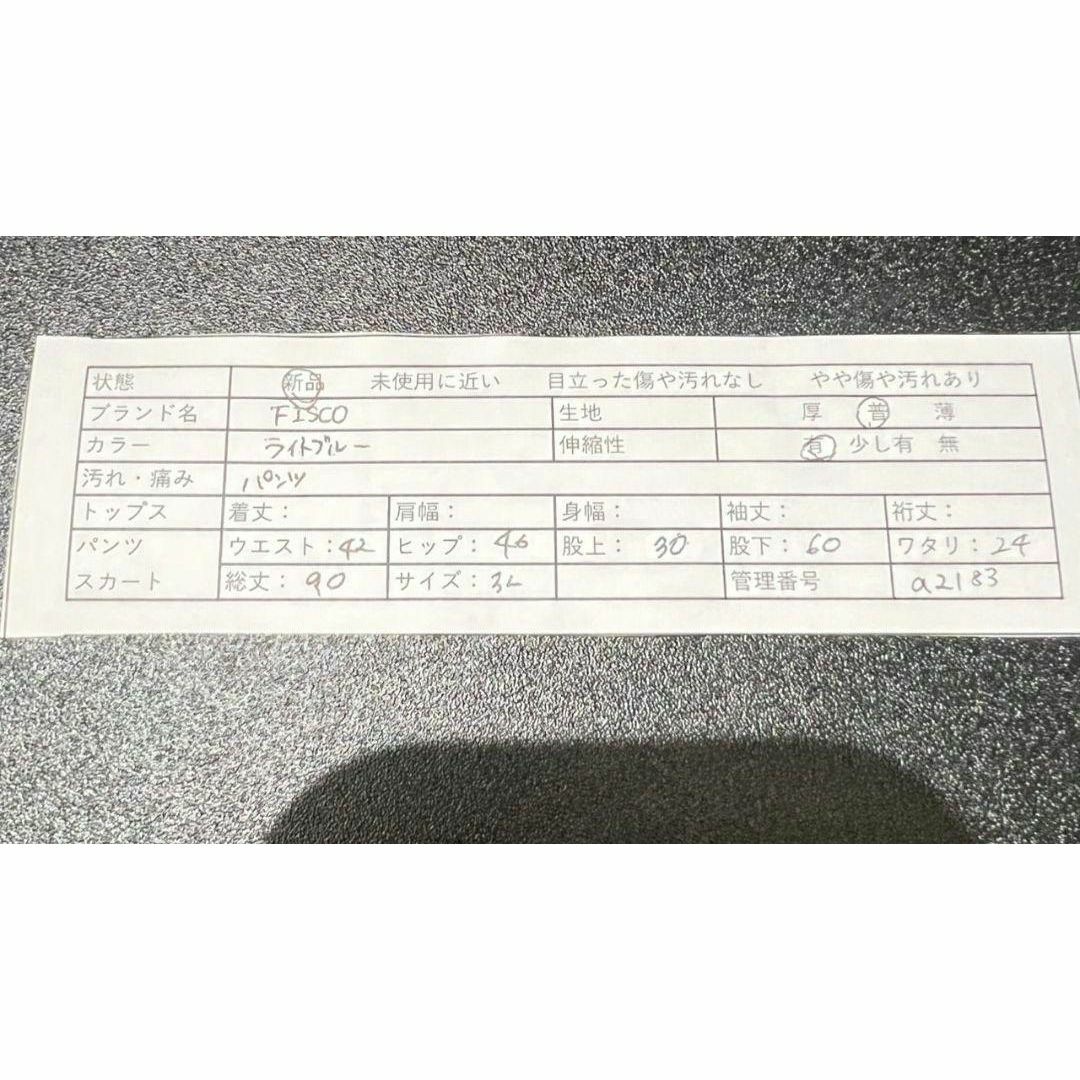 状態 新品 未使用に近い 目立った傷や汚れなし やや傷や汚れあり
ブランド名 FISCO 生地 厚 普 薄
カラー ライトブルー 伸縮性 有 少し有 無
汚れ・痛み パンツ
トップス 着丈： 肩幅： 身幅： 袖丈： 裄丈：
パンツ ウエスト：42 ヒップ：46 股上：30 股下：60 ワタリ：24
スカート 総丈：90 サイズ：3L 管理番号 a2183